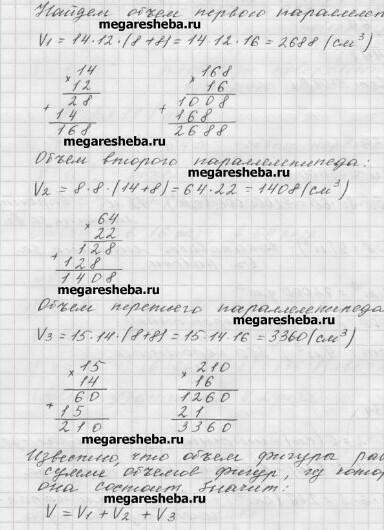 Найдем объем первого параллелеп
megaresheba.ru
V1 = 14·12·(8+8) = 14·12·16 = 2688 (см³)
megaresheba.ru
× 14 × 168
12 16
+ 28 + 1008
14 168
168 2688
megaresheba.ru
Объем второго параллелепипеда:
megaresheba.ru
V2 = 8·8·(14+8) = 64·22 = 1408 (см³)
× 64
22
+ 128
128
1408
megaresheba.ru
Объем третьего параллелепипеда
megaresheba.ru
V3 = 15·14·(8+8) = 15·14·16 = 3360 (см³)
× 15 × 210
14 16
+ 60 1260
15 21
210 3360
megaresheba.ru
Известно, что объем фигуры рав
сумме объемов фигур, из котор
она состоит, значит:
megaresheba.ru
V = V1 + V2 + V3